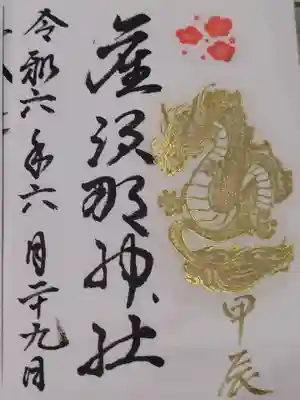 甲辰
産須那神社
令和六年六月二十九日